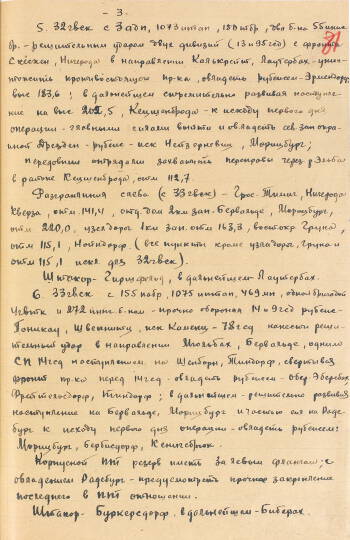 - 3 -
31
5. 32гвск с 3 адп, 1073 иптап, 150тбр, два б-на 55 инж
бр. - решительным ударом двух дивизий (13 и 95гд) с фронта
Скёскен, Нидерода в направлении Калькройт, Лаутербах - унич-
тожить противостоящего пр-ка, овладеть рубежом - Эрмсдорф,
выс 183,6; в дальнейшем стремительно развивая наступле-
ние на выс 202,5, Кецшенброда - к исходу первого дня
операции - главными силами выйти и овладеть сев зап окра-
иной Дрезден - рубеж - иск , Морицбург;
передовыми отрядами захватить переправы через р. Эльба
в районе Кецшенброда, отм 112,7.
Разгранлиния слева (с 33гвск) - Грос. Тимиг, Нидерода
Кверза, отм. 141,4, отд. дом 2км зап. Бервальде, Морицбург,
отм 220,0, узел дорог 1км зап. отм 163,3, вост окр Груна,
отм 115,1, (все пункты кроме узла дорог, Груна и
отм 115,1 искл для 32гвск).
Штакор - Гиршфельд, в дальнейшем - Лаутербах.
6. 33гвск с 155 пабр, 1075 иптап, 469мп, одной бригадой
4гвтк и 272 инж б-ном - прочно обороняя 14 и 9гсд рубеж -
Поникау, Швепниц, иск Каменц - 78гсд нанести реши-
тельный удар в направлении Мюльбах, Бервальде, одним
СП 14гсд наступлением на Шенборн, Тиндорф, свертывая
фронт пр-ка перед 14гсд - овладеть рубежом - Обер Эберсбах
, ; в дальнейшем - решительно развивая
наступление на Бервальде, Морицбург и частью сил на Раде-
бург к исходу первого дня операции - овладеть рубежом:
Морицбург, Бербисдорф, Кенигсбрюк.
Корпусной ПТ резерв иметь за левым флангом; с
овладением Радебург - предусмотреть прочное закрепление
последнего в ПТ отношении.
Штакор - Буркерсдорф, в дальнейшем - Биберах.